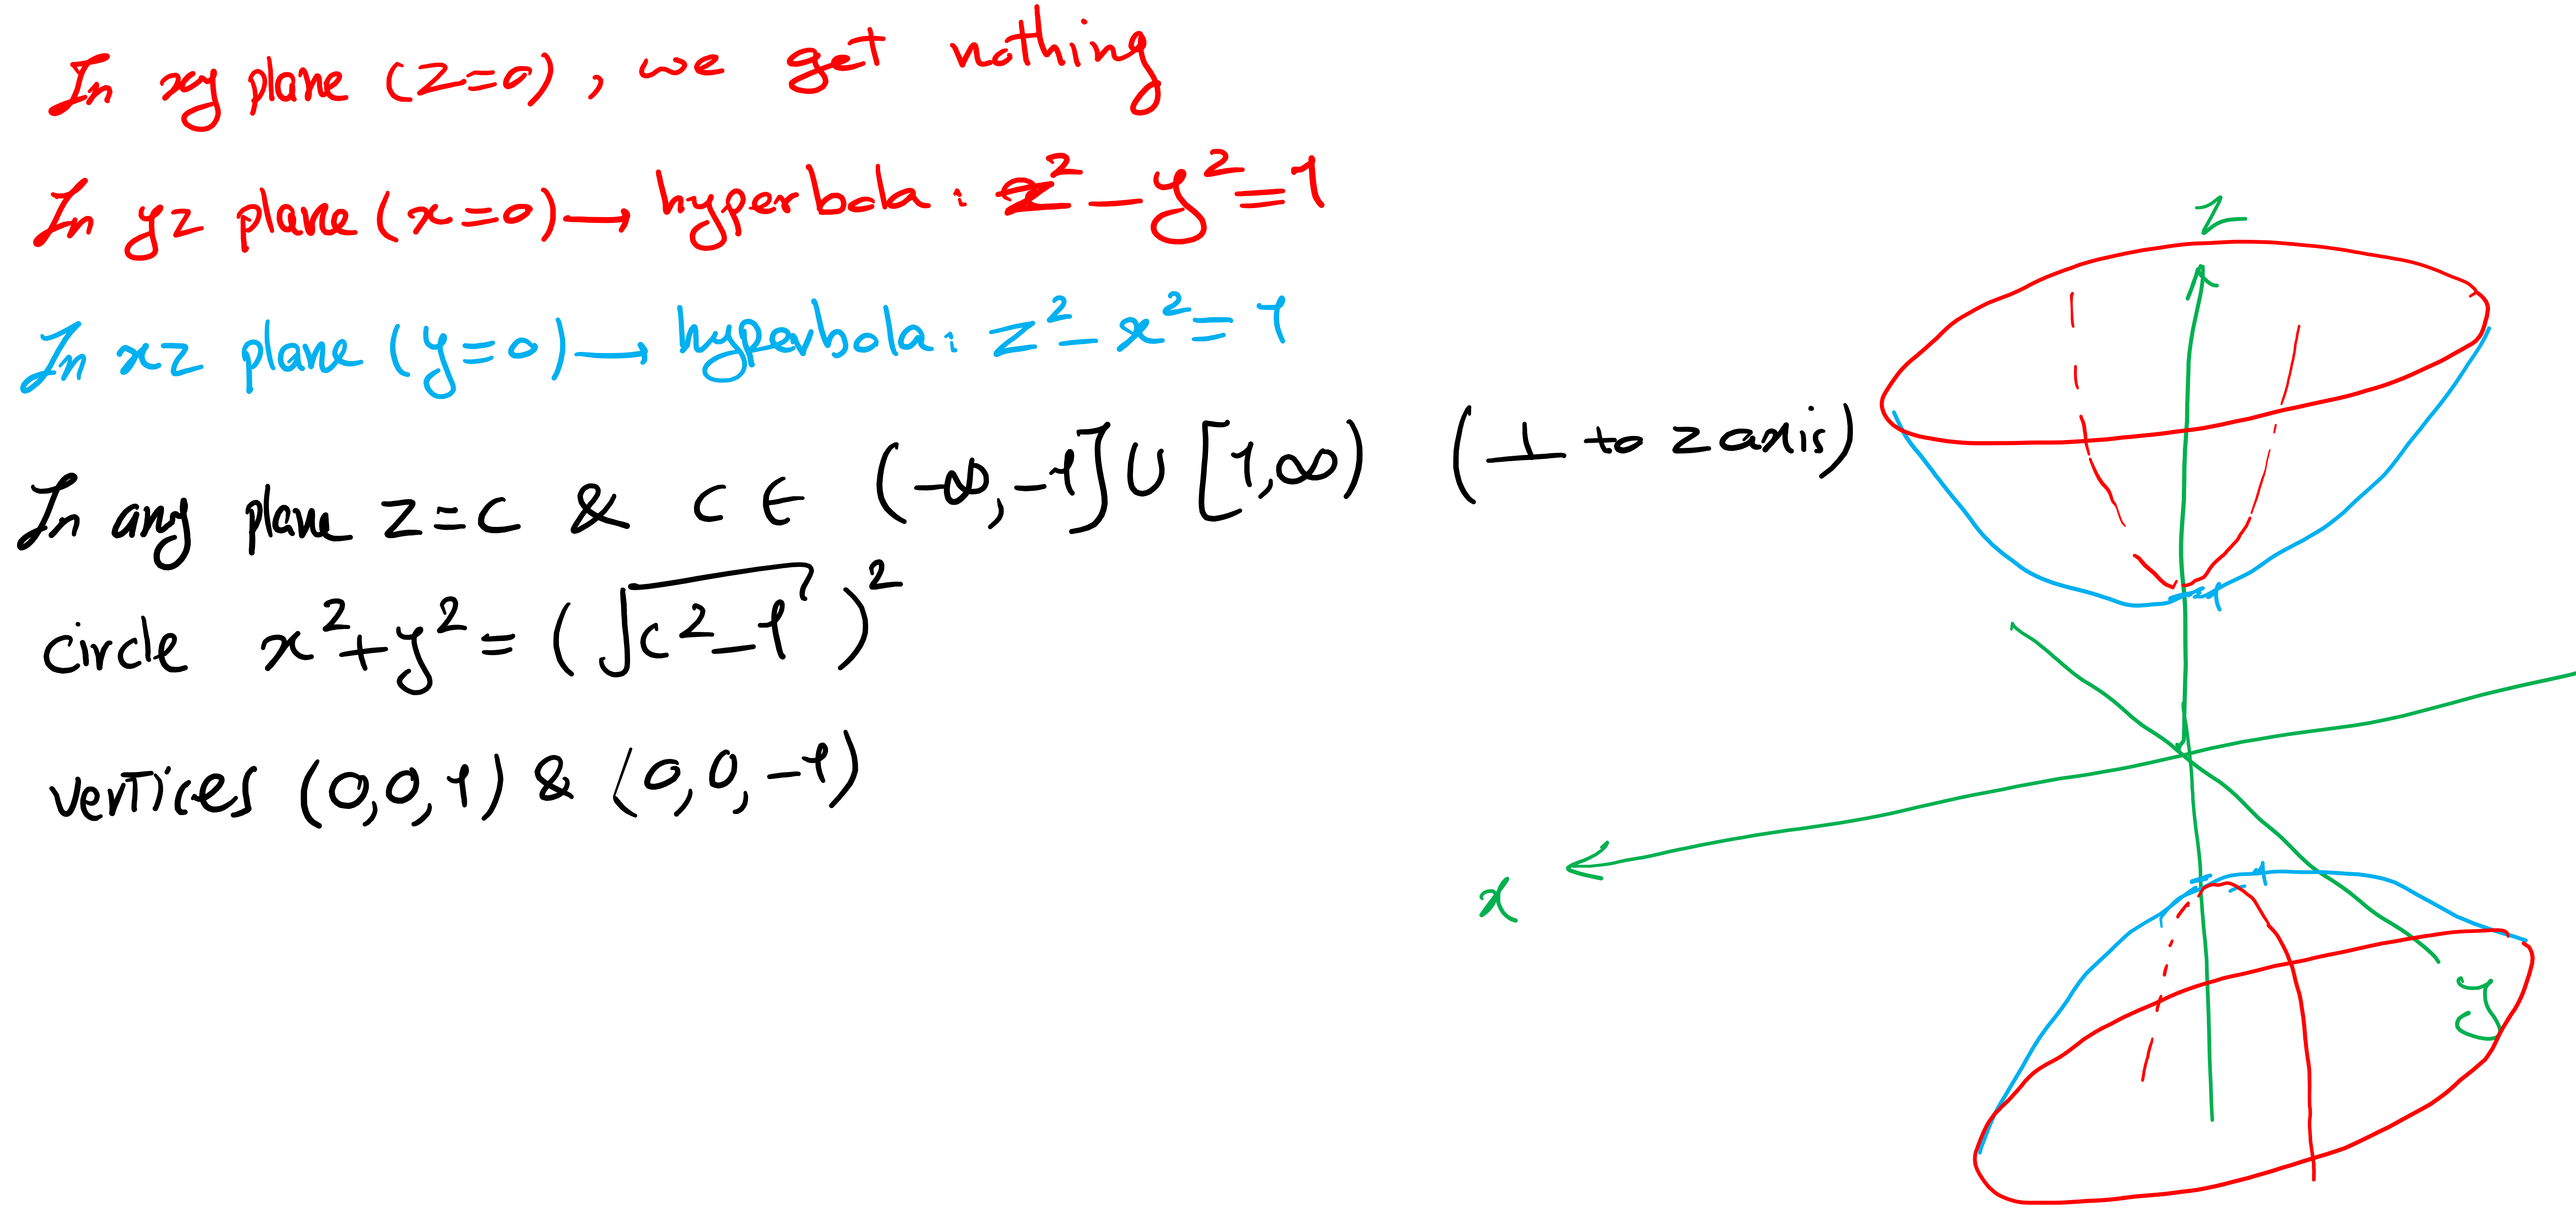 In xy plane (z=0), we get nothing
In yz plane (x=0) → hyperbola: z² - y² = 1
In xz plane (y=0) → hyperbola: z² - x² = 1
In any plane z=c & c ∈ (-∞,-1] ∪ [1,∞) (⊥ to z axis)
circle x² + y² = (√(c²-1))²
vertices (0,0,1) & (0,0,-1)
z
1
x
-1
y